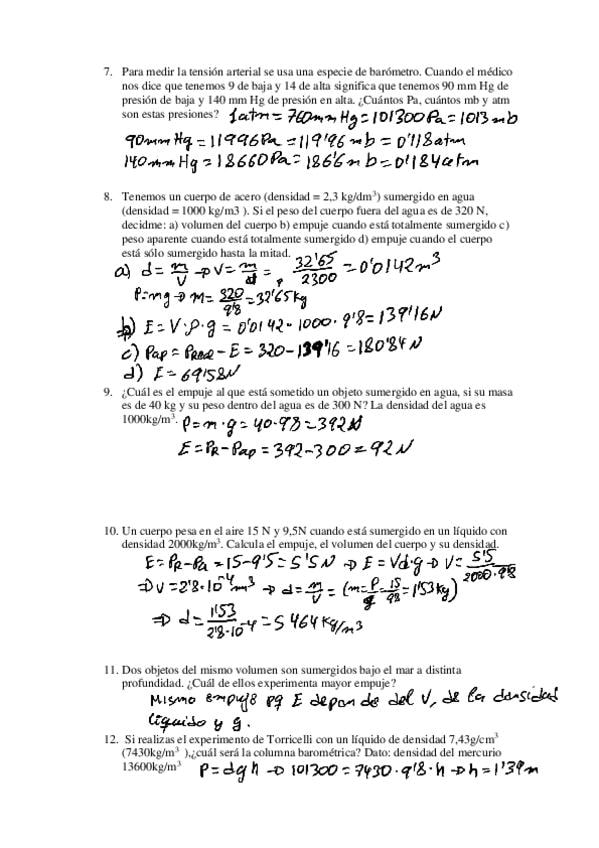 7. Para medir la tensión arterial se usa una especie de barómetro. Cuando el médico
nos dice que tenemos 9 de baja y 14 de alta significa que tenemos 90 mm Hg de
presión de baja y 140 mm Hg de presión en alta. ¿Cuántos Pa, cuántos mb y atm
son estas presiones? 1atm = 760mmHg = 101300Pa = 1013mb
90mmHg = 11996Pa = 119'96mb = 0'118atm
140mmHg = 18660Pa = 186'6mb = 0'184atm
8. Tenemos un cuerpo de acero (densidad = 2,3 kg/dm³) sumergido en agua
(densidad = 1000 kg/m3 ). Si el peso del cuerpo fuera del agua es de 320 N,
decidme: a) volumen del cuerpo b) empuje cuando está totalmente sumergido c)
peso aparente cuando está totalmente sumergido d) empuje cuando el cuerpo
está sólo sumergido hasta la mitad.
a) d = m/V → V = m/d = 32'65/2300 = 0'0142m³
P=mg → m = 320/9'8 = 32'65kg
b) E = V·ρ·g = 0'0142·1000·9'8 = 139'16N
c) Pap = Preal - E = 320 - 139'16 = 180'84N
d) E = 69'58N
9. ¿Cuál es el empuje al que está sometido un objeto sumergido en agua, si su masa
es de 40 kg y su peso dentro del agua es de 300 N? La densidad del agua es
1000kg/m³. P = m·g = 40·9'8 = 392N
E = PR - Pap = 392 - 300 = 92N
10. Un cuerpo pesa en el aire 15 N y 9,5N cuando está sumergido en un líquido con
densidad 2000kg/m³. Calcula el empuje, el volumen del cuerpo y su densidad.
E = PR - Pa = 15 - 9'5 = 5'5N → E = Vdg → V = 5'5/2000·9'8
⇒ V = 2'8·10⁻⁴m³ → d = m/V = (m = P/g = 15/9'8 = 1'53kg)
⇒ d = 1'53/2'8·10⁻⁴ = 5464kg/m³
11. Dos objetos del mismo volumen son sumergidos bajo el mar a distinta
profundidad. ¿Cuál de ellos experimenta mayor empuje?
Mismo empuje pq E depende del V, de la densidad
líquido y g.
12. Si realizas el experimento de Torricelli con un líquido de densidad 7,43g/cm³
(7430kg/m³ ),¿cuál será la columna barométrica? Dato: densidad del mercurio
13600kg/m³ P = dgh → 101300 = 7430·9'8·h → h = 1'39m